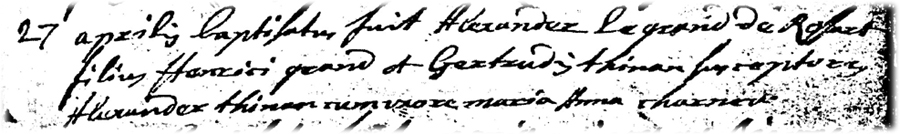 27 aprilis baptisatus fuit Alexander legrand de Rosart
filius Henrici grand et Gertrudis thinan susceptores
Alexander thinan cum uxore maria Anna charneu